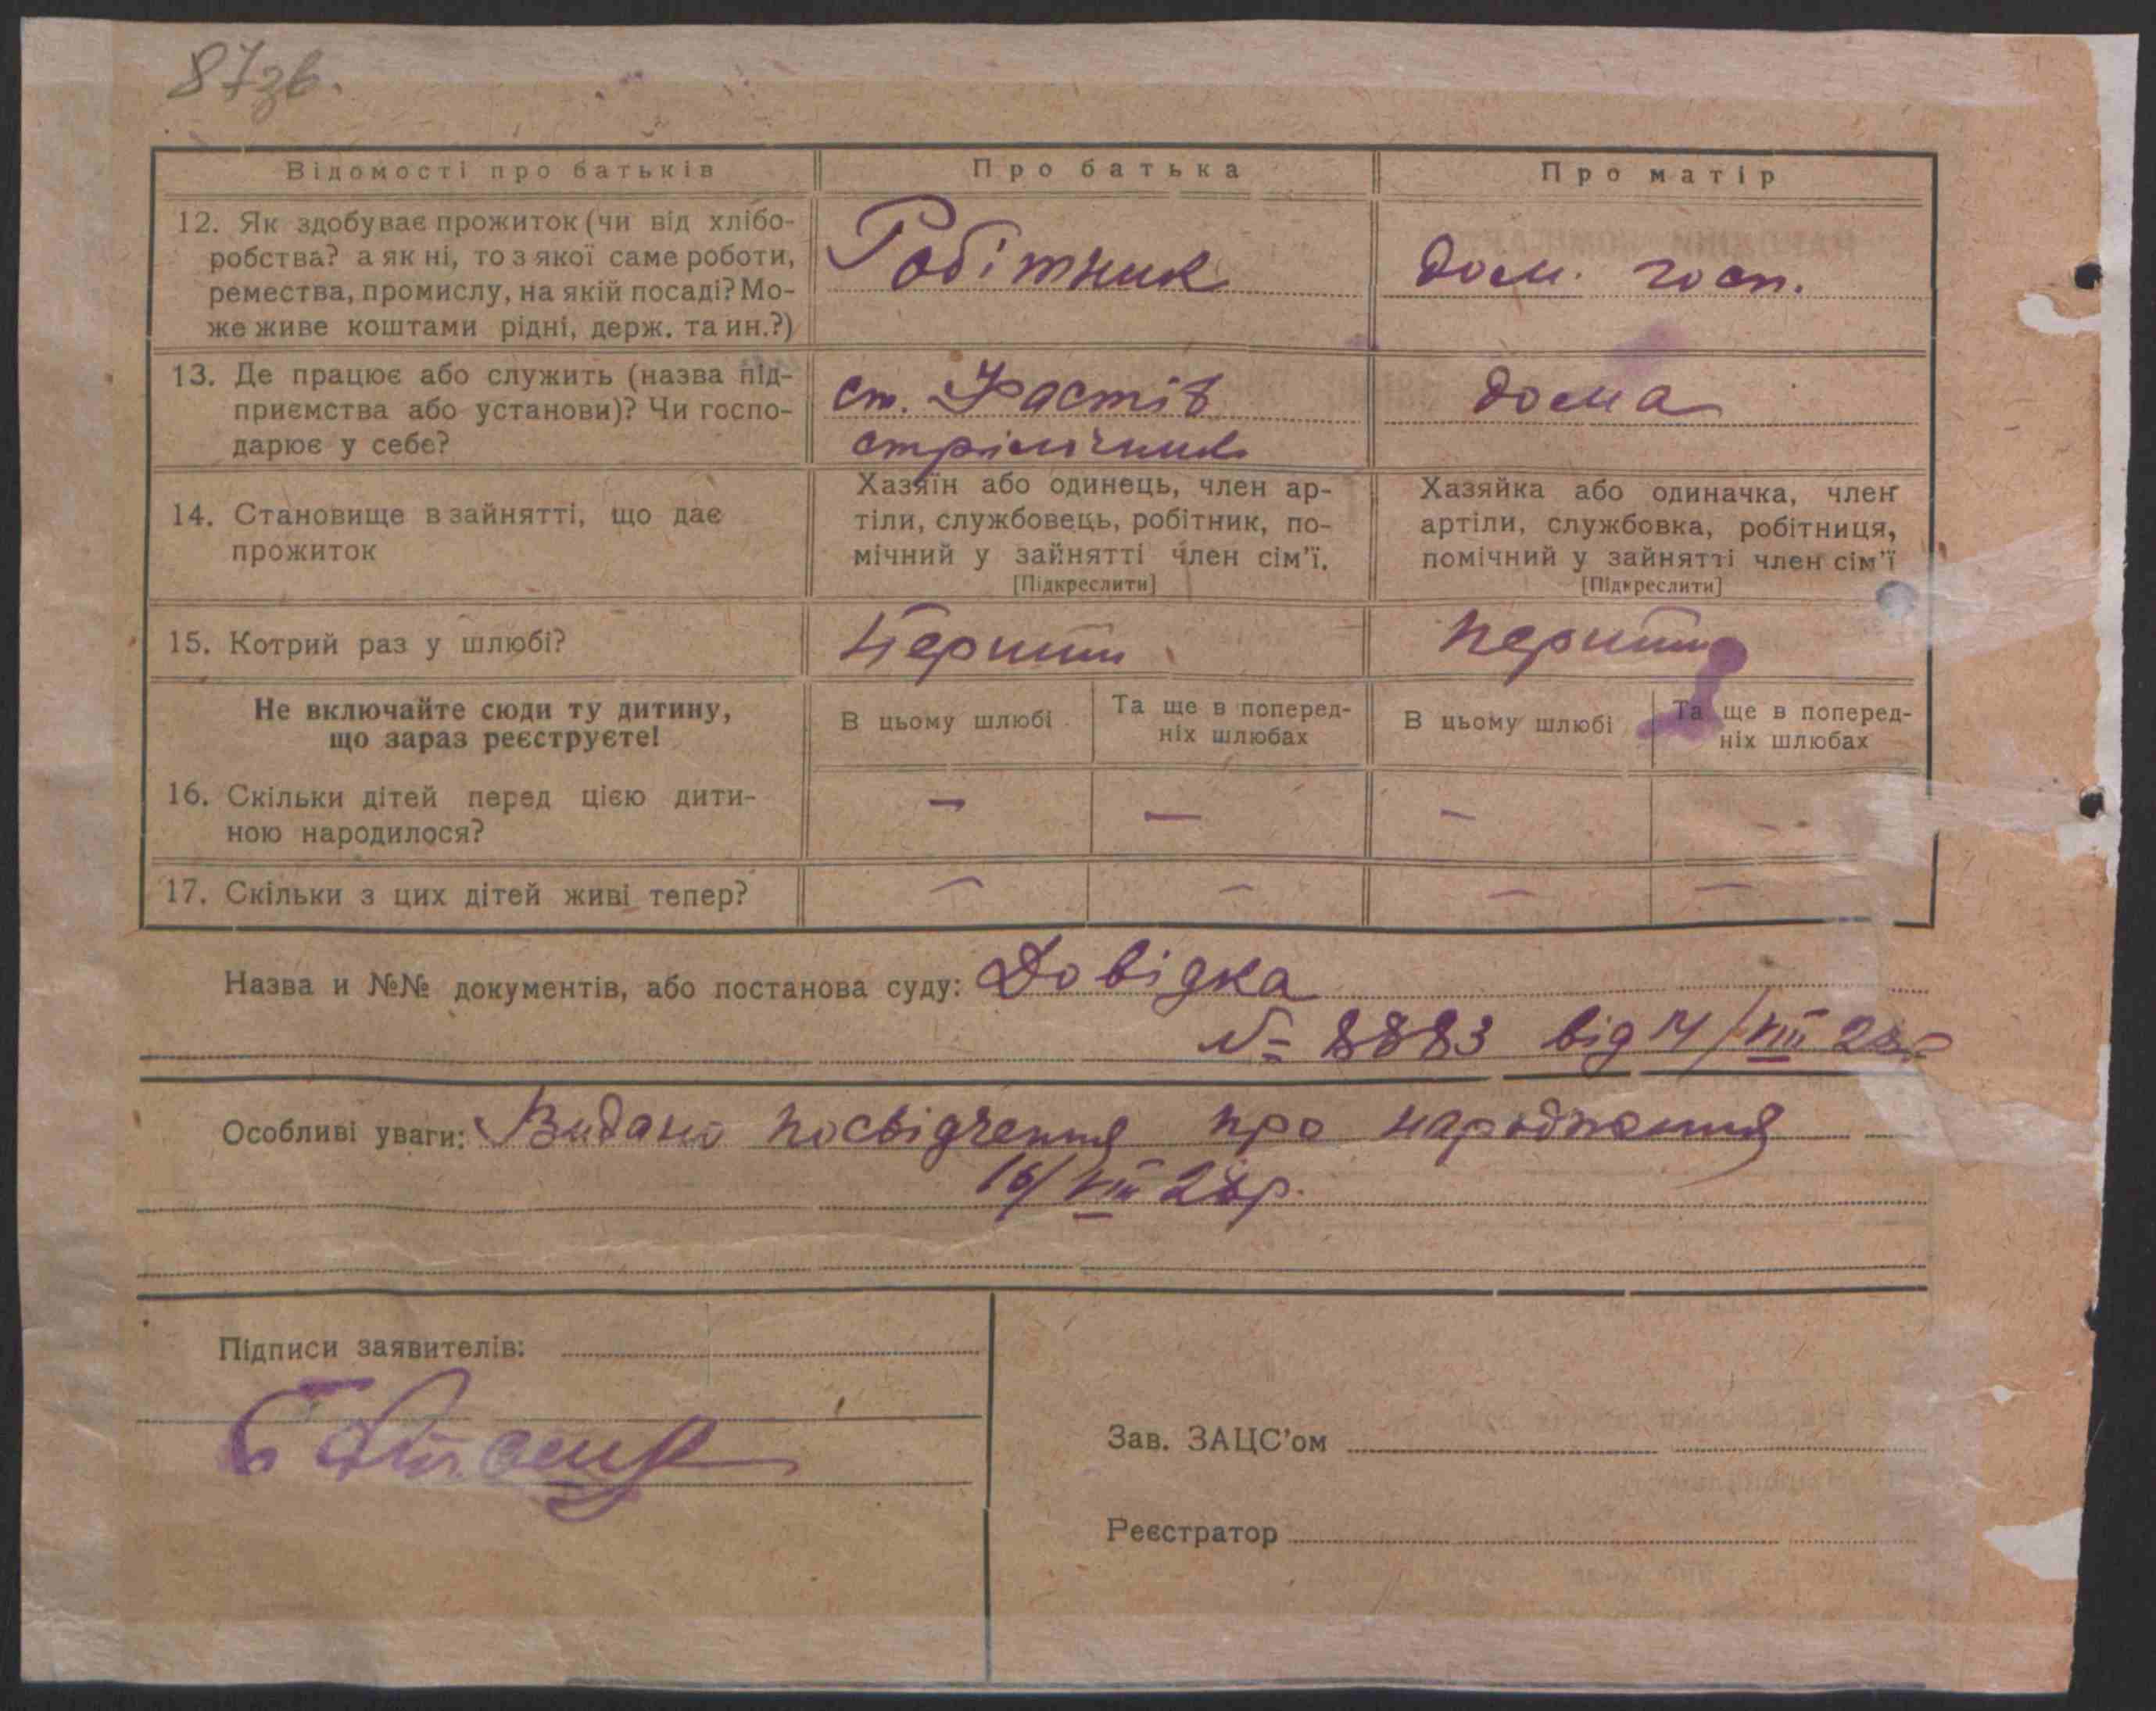 87зв.
Відомості про батьків
Про батька
Про матір
12. Як здобуває прожиток (чи від хлібо-
робства? а як ні, то з якої саме роботи,
ремества, промислу, на якій посаді? Мо-
же живе коштами рідні, держ. та ин.?)
Робітник
дом. госп.
13. Де працює або служить (назва під-
приємства або установи)? Чи госпо-
дарює у себе?
ст. Фастів
стрілочник
дома
14. Становище в зайнятті, що дає
прожиток
Хазяїн або одинець, член ар-
тіли, службовець, робітник, по-
мічний у зайнятті член сім'ї.
[Підкреслити]
Хазяйка або одиначка, член
артіли, службовка, робітниця,
помічний у зайнятті член сім'ї
[Підкреслити]
15. Котрий раз у шлюбі?
Перший
перший
Не включайте сюди ту дитину,
що зараз реєструєте!
В цьому шлюбі
Та ще в поперед-
ніх шлюбах
В цьому шлюбі
Та ще в поперед-
ніх шлюбах
16. Скільки дітей перед цією дити-
ною народилося?
— — — —
17. Скільки з цих дітей живі тепер?
— — — —
Назва и №№ документів, або постанова суду: Довідка
№ 8883 від 14/VIII 28р
Особливі уваги: Видано посвідчення про народження
16/VIII 28р.
Підписи заявителів:
Зав. ЗАЦС'ом
Реєстратор